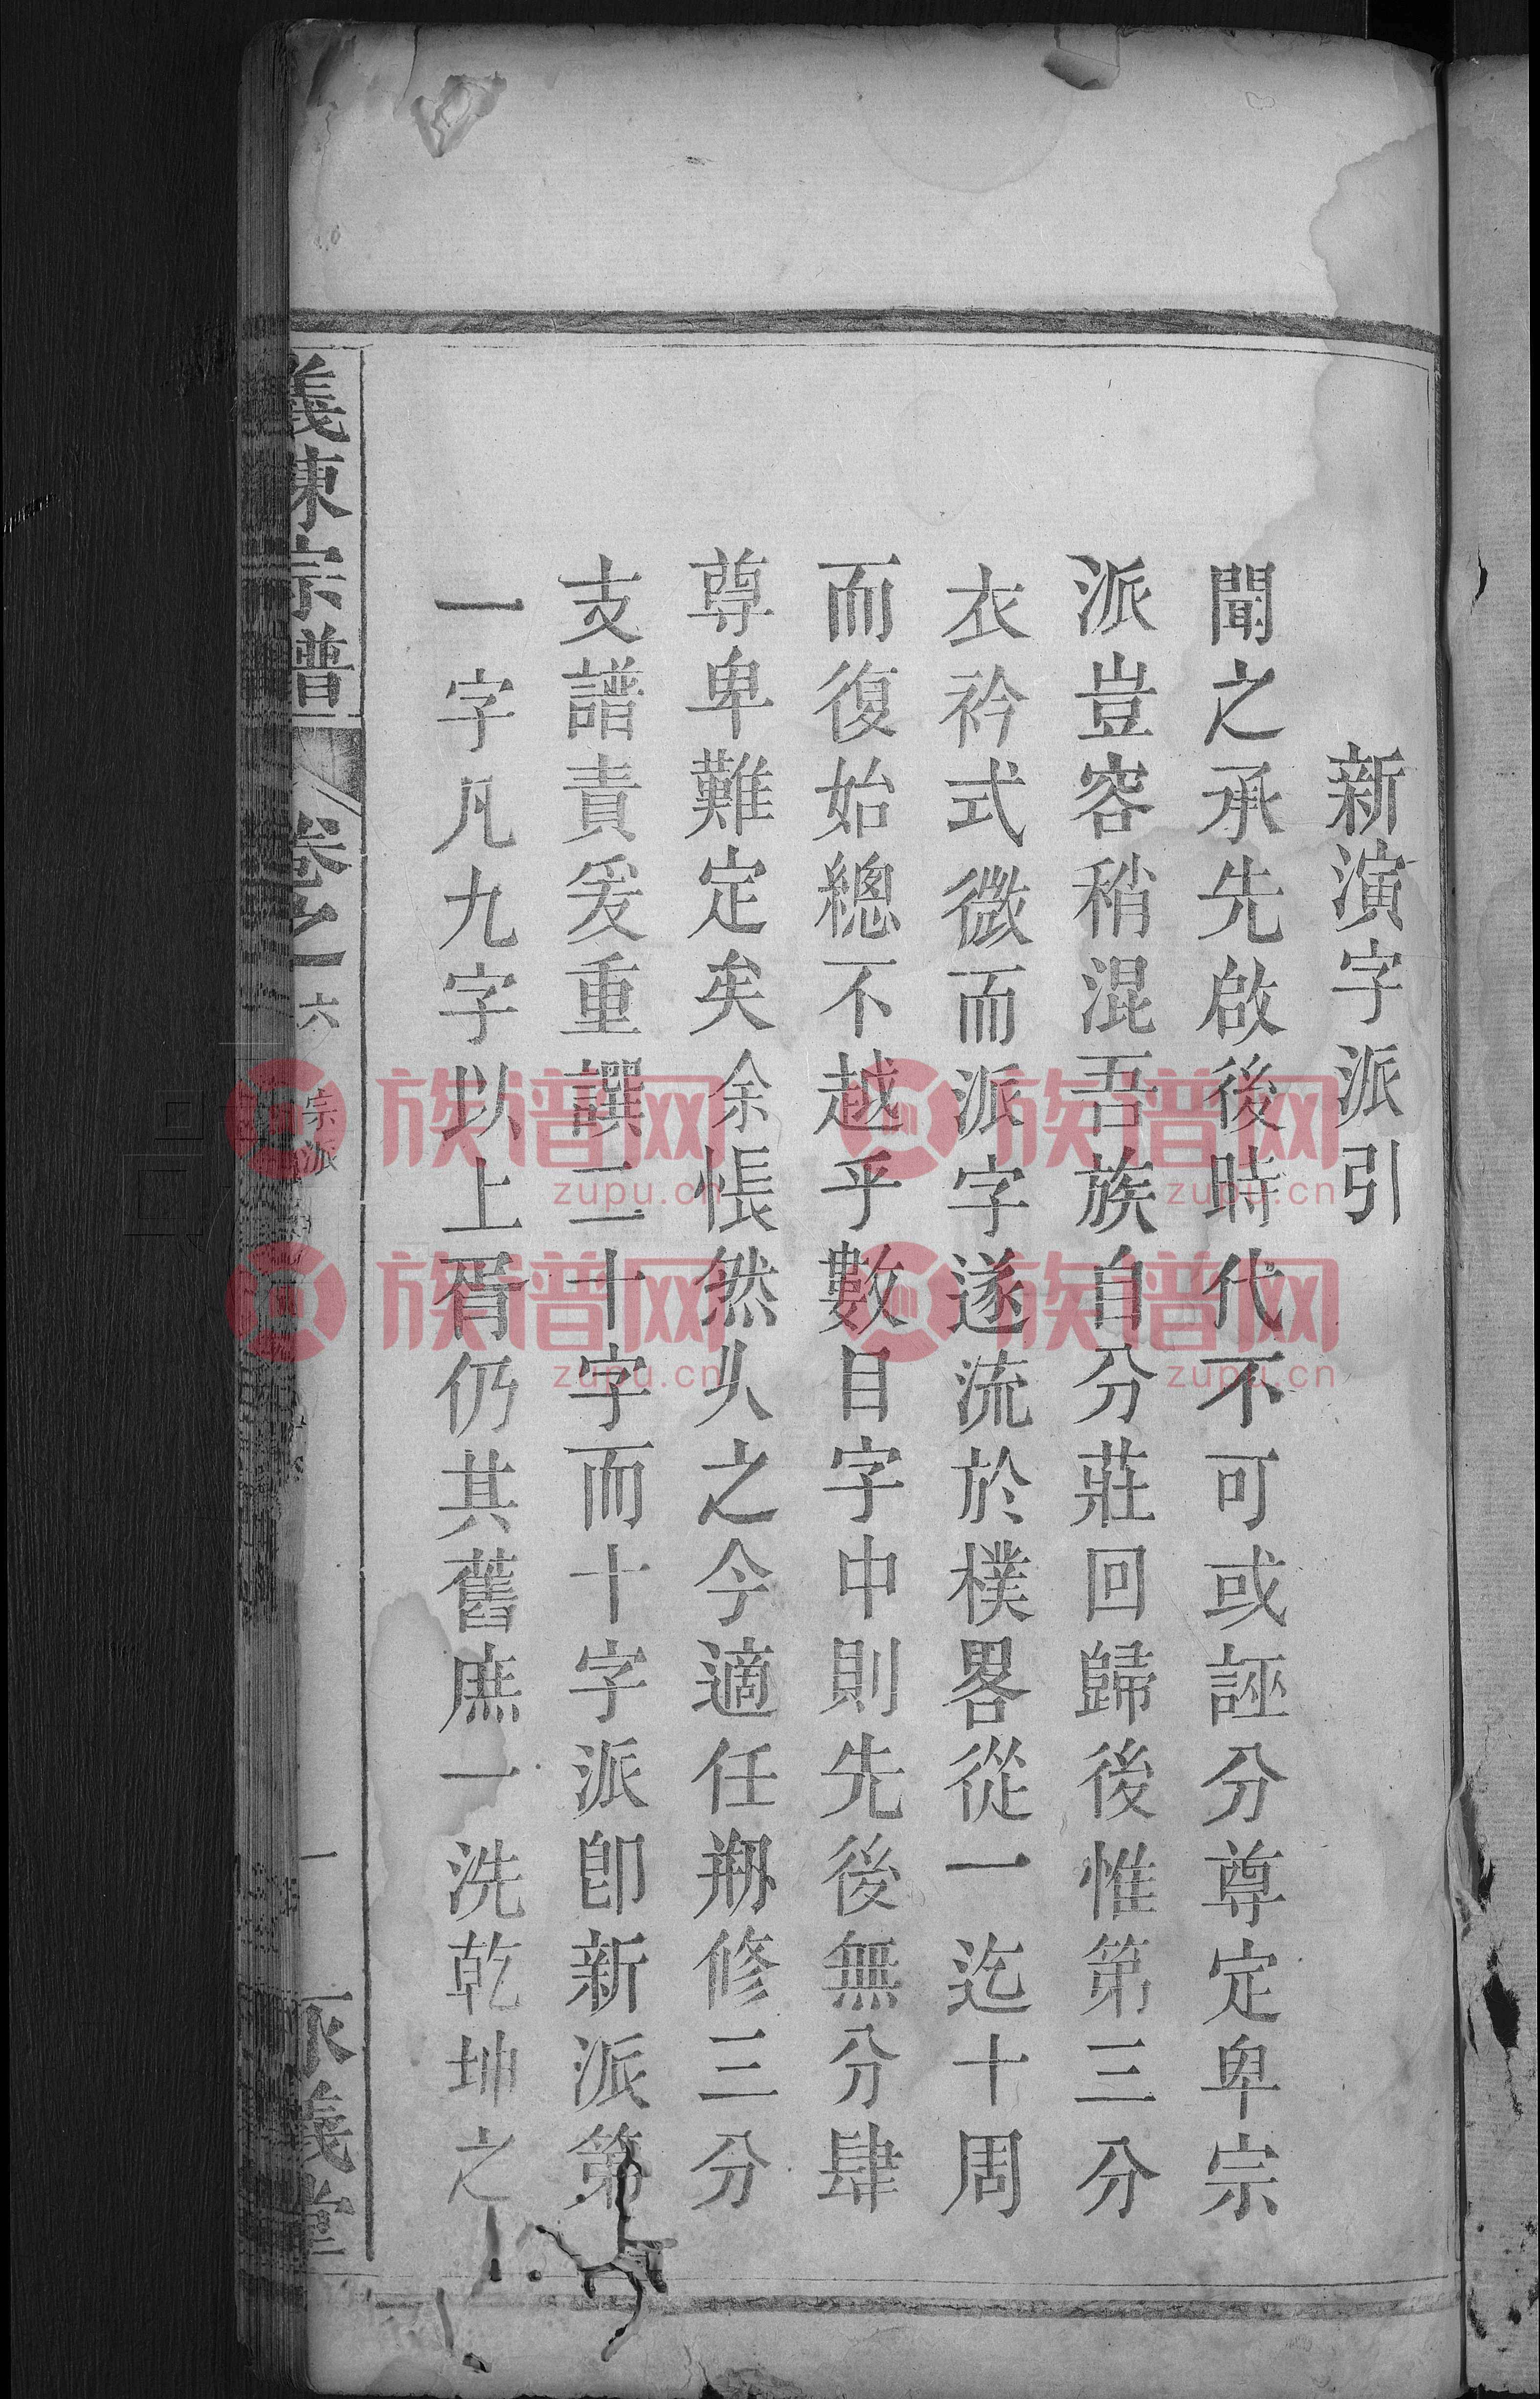 新演字派引
聞之承先啟後時代不可或誣分尊定卑宗
派豈容稍混吾族自分莊回歸後惟第三分
衣衿式微而派字遂流於樸畧從一迄十周
而復始總不越乎數目字中則先後無分肆
尊卑難定矣余悵然乆之今適任刱修三分
支譜責爰重譔二十字而十字派即新派第
一字凡九字以上胥仍其舊庶一洗乾坤之
義陳宗譜
卷之一
六
宗派
一
義堂
族谱网
zupu.cn
族谱网
zupu.cn
族谱网
zupu.cn
族谱网
zupu.cn